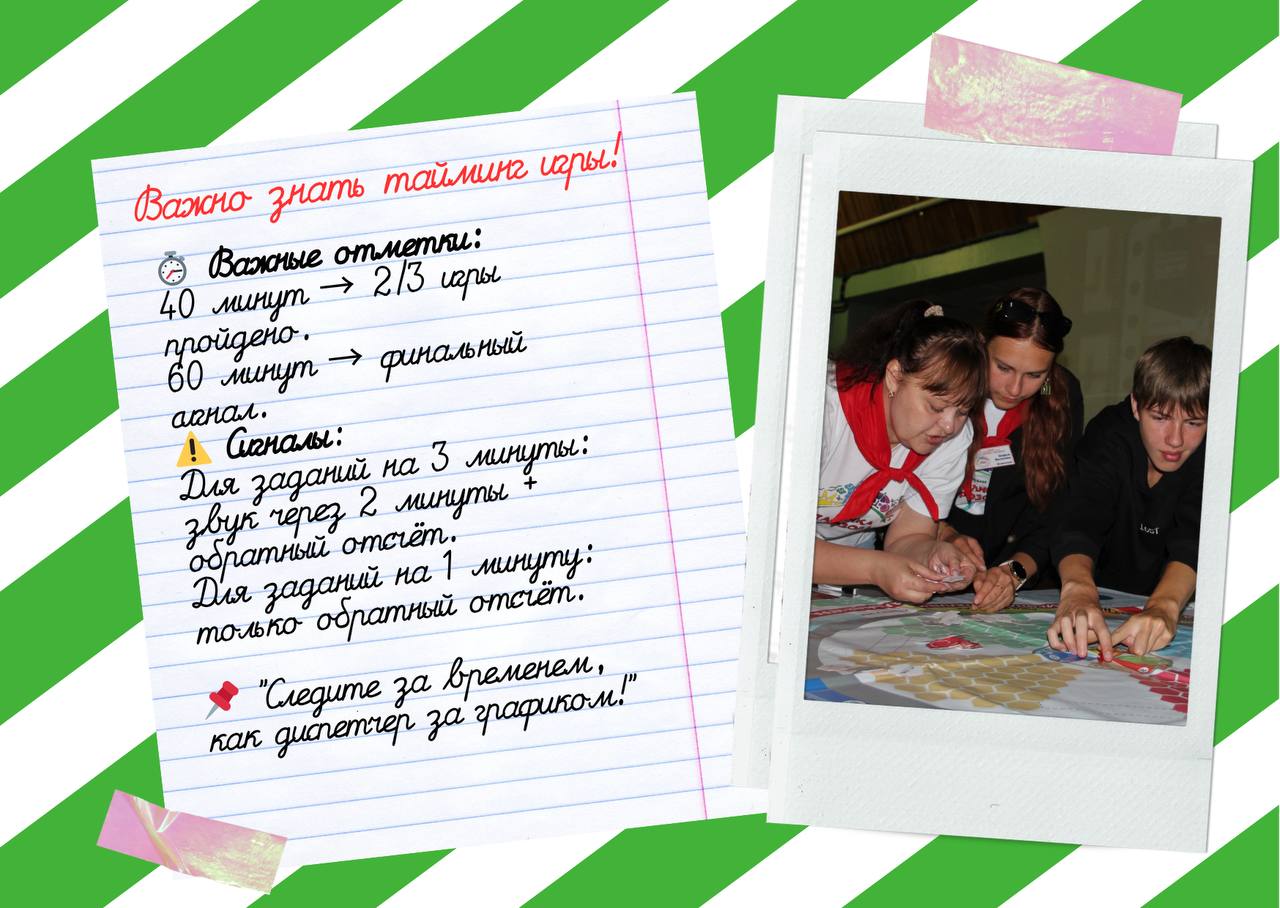 Важно знать тайминг игры!
⏱ Важные отметки:
40 минут → 2/3 игры
пройдено.
60 минут → финальный
сигнал.
⚠ Сигналы:
Для заданий на 3 минуты:
звук через 2 минуты +
обратный отсчёт.
Для заданий на 1 минуту:
только обратный отсчёт.
📌 "Следите за временем,
как диспетчер за графиком!"